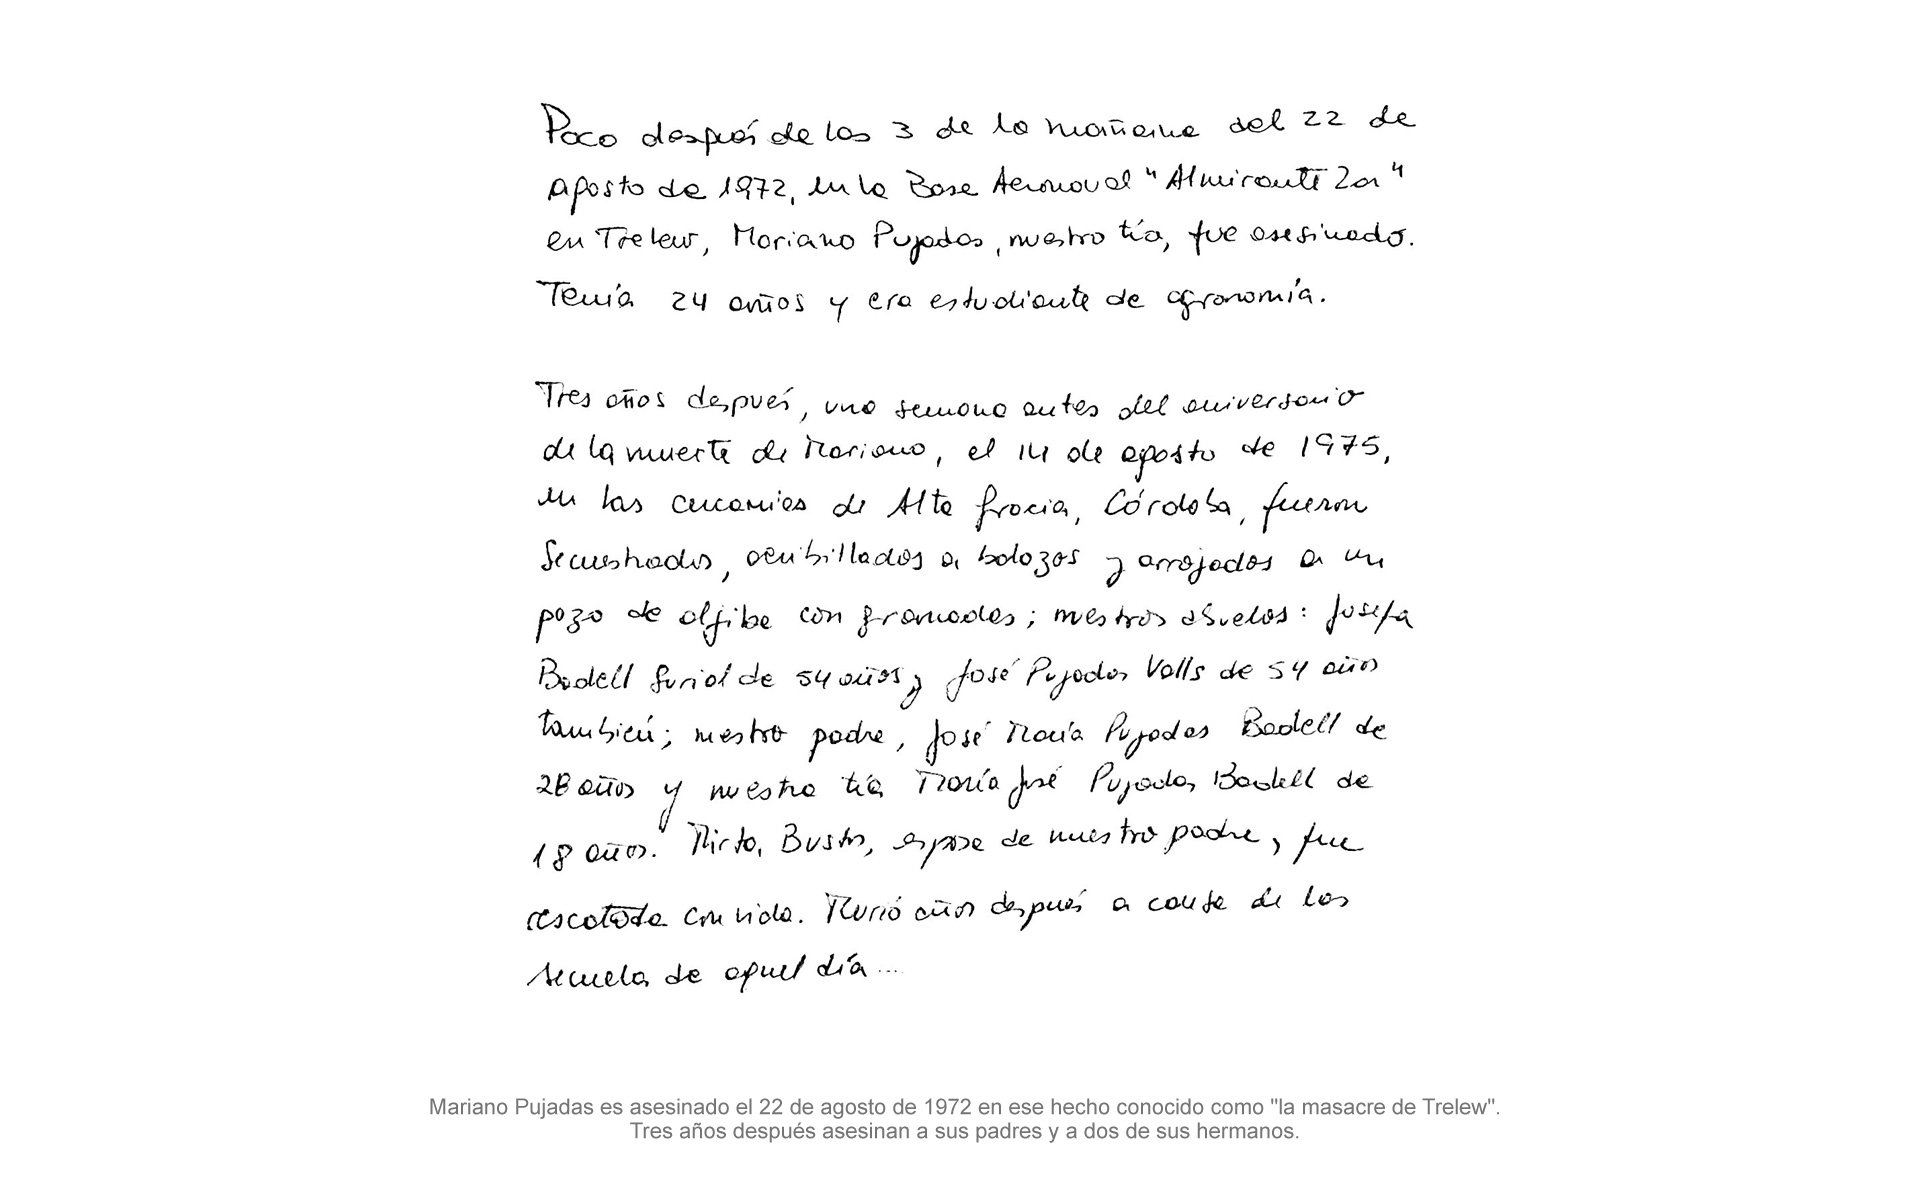 Poco después de las 3 de la mañana del 22 de
agosto de 1972, en la Base Aeronaval "Almirante Zar"
en Trelew, Mariano Pujadas, nuestro tío, fue asesinado.
Tenía 24 años y era estudiante de agronomía.
Tres años después, una semana antes del aniversario
de la muerte de Mariano, el 14 de agosto de 1975,
en las cercanías de Alta Gracia, Córdoba, fueron
secuestrados, acribillados a balazos y arrojados a un
pozo de aljibe con granadas; nuestros abuelos: Josefa
Badell Suriol de 54 años y José Pujadas Valls de 54 años
también; nuestro padre, José María Pujadas Badell de
28 años y nuestra tía María José Pujadas Badell de
18 años. Mirta Bustos, esposa de nuestro padre, fue
rescatada con vida. Murió años después a causa de las
secuelas de aquel día...
Mariano Pujadas es asesinado el 22 de agosto de 1972 en ese hecho conocido como "la masacre de Trelew".
Tres años después asesinan a sus padres y a dos de sus hermanos.